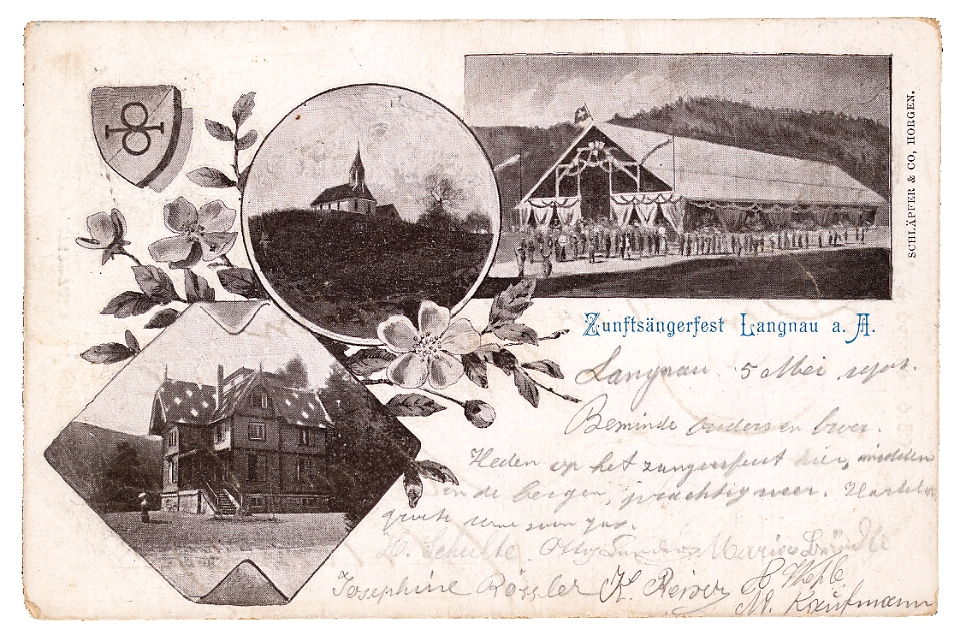 SCHLÄPFER & CO, HORGEN.
Zunftsängerfest Langnau a. A.
Langnau. 5 Mei
Beminde ouders en broer.
Heden op het zangersfeest hier, midden
in de bergen, prachtig weer. Hartel.
groete van
Schulte. Otto Marie Bründle
Josephine Rössler K. Reiser H. Wehle
M. Kaufmann